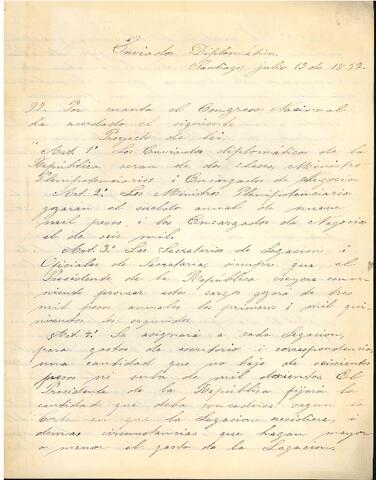 Enviados Diplomáticos.
Santiago, julio 12 de 1852.
Por cuanto el Congreso Nacional
ha acordado el siguiente
Proyecto de lei.
"Art. 1.° Los Enviados diplomáticos de la
República serán de dos clases, Ministros
Plenipotenciarios i Encargados de Negocios
Art. 2.° Los Ministros Plenipotenciarios
gozarán el sueldo anual de nueve
mil pesos i los Encargados de Negocios
el de seis mil.
Art. 3.° Los Secretarios de Legacion, i
Oficiales de Secretaria, siempre que el
Presidente de la República crea conve-
niente proveer estos cargos gozará de tres
mil pesos anuales los primeros i mil qui-
nientos los segundos.
Art. 4.° Se asignará a cada Legacion,
para gastos de escritorio i correspondencia,
una cantidad que no baje de seiscientos
pesos ni exeda de mil doscientos. El
Presidente de la República fijará la
cantidad que deba concederse segun la
Corte en que la Legacion residiere, i
demas circunstancias que hagan mayor
o menor el gasto de la Legacion.